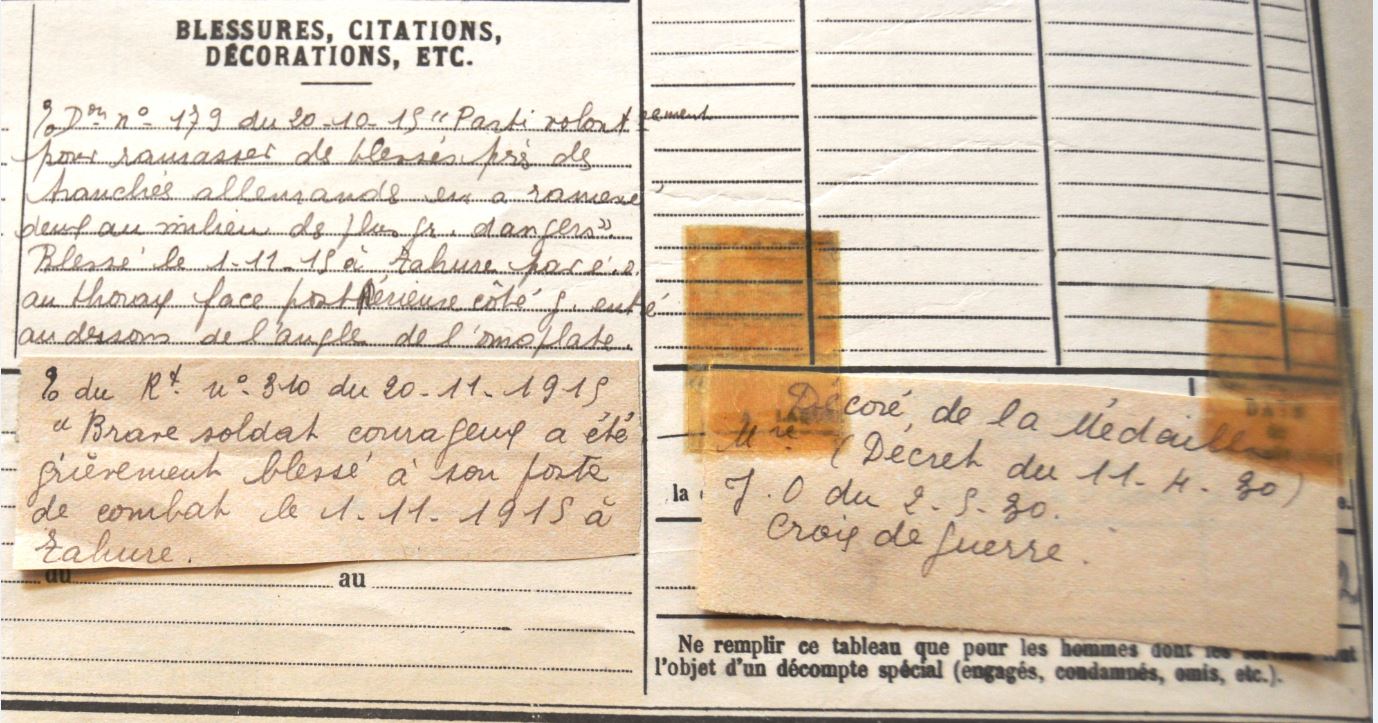 BLESSURES, CITATIONS,
DÉCORATIONS, ETC.
Don n° 179 du 20-10-15 "Parti volontairement
pour ramasser des blessés près des
tranchés allemands en a ramené
deux au milieu des plus gr. dangers".
Blessé le 1-11-15 à Tahure par é.o.
au thorax face postérieure côté g. entré
au dessous de l'angle de l'omoplate.
du Rt n° 310 du 20-11-1915
"Brave soldat courageux a été
grièvement blessé à son poste
de combat le 1-11-1915 à
Tahure.
du au
Décoré de la Médaille
Mre (Décret du 11-4-30)
J.O du 2-5-30.
Croix de guerre.
la
DATE
Ne remplir ce tableau que pour les hommes dont les
l'objet d'un décompte spécial (engagés, condamnés, omis, etc.).